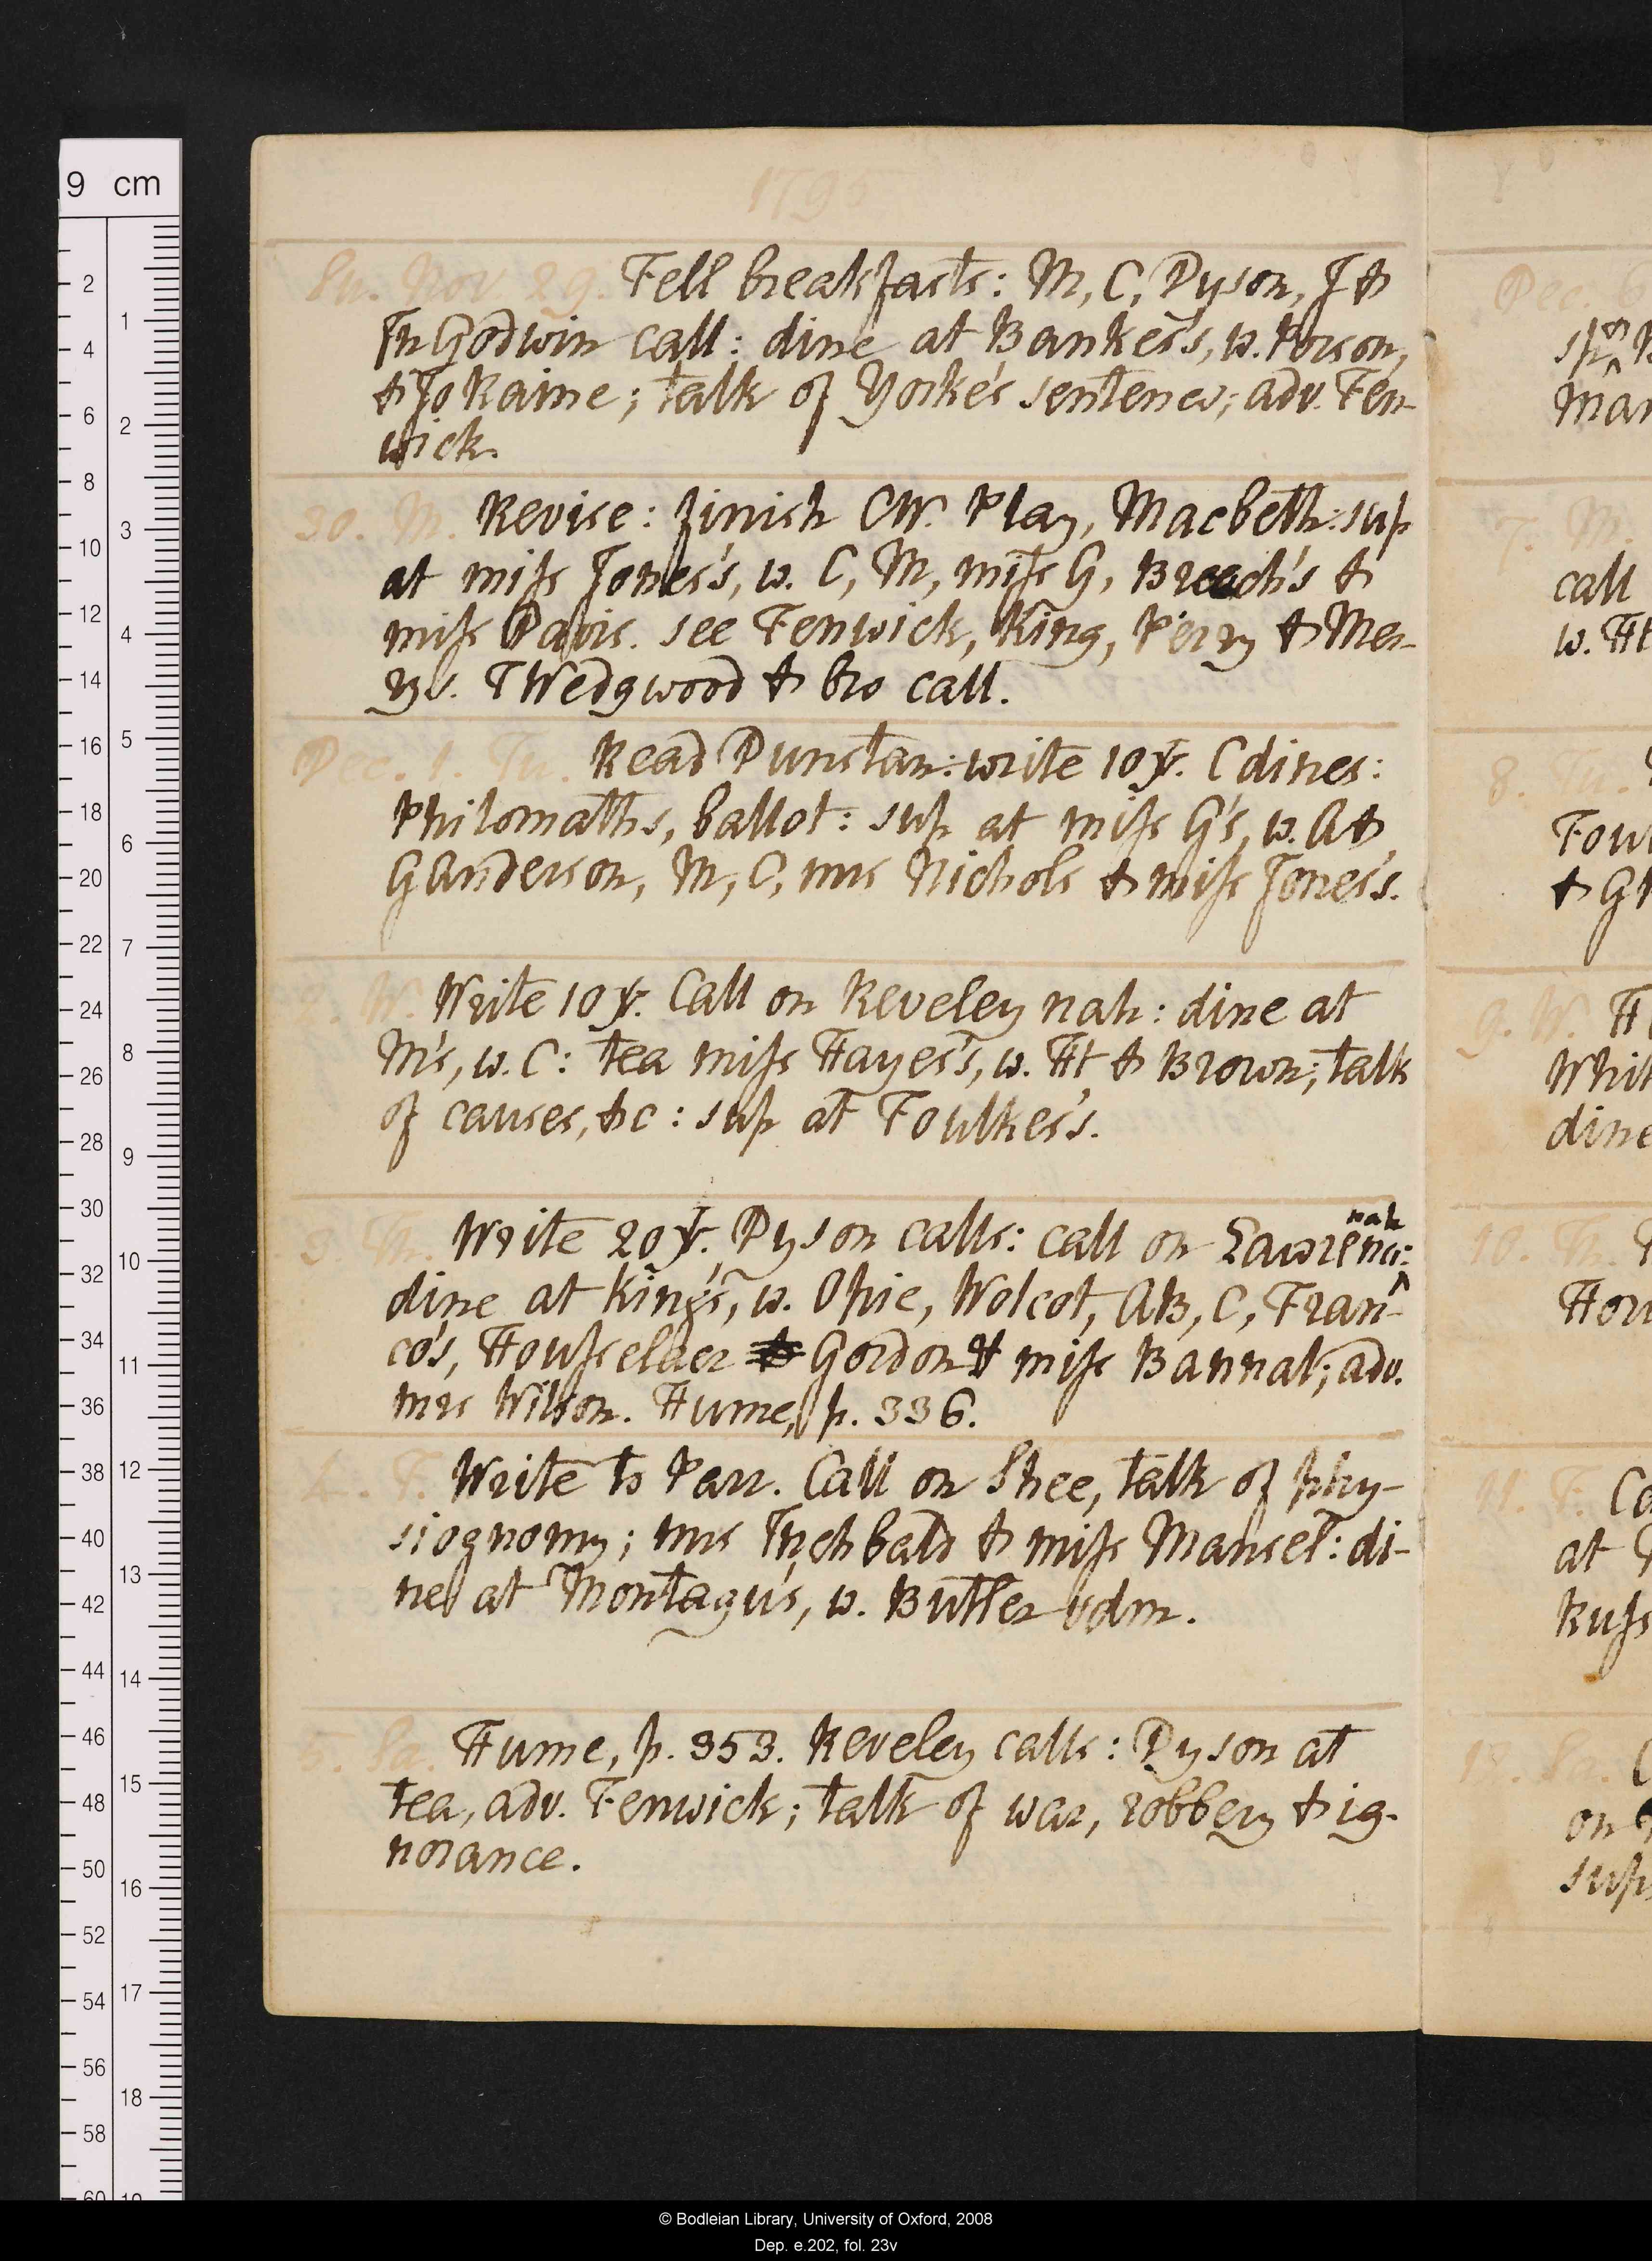 1795
Su. Nov. 29. Fell breakfasts: M, C, Dyson, J &
Th Godwin call: dine at Bankes's, w. Porson,
& Jo Raine; talk of Yorke's sentence; adv. Fen-
wick.
30. M. Revise: finish CW. Play, Macbeth: sup
at miss Jones's, w. C, M, miss G, Breach's &
miss Davis. see Fenwick, King, Perry & Mer-
rys. T Wedgwood & bro call.
Dec. 1. Tu. Read Dunstan: write 10 . C dines:
Philomaths, ballot: sup at miss G's, w. A &
G Anderson, M, C, mrs Nichols & miss Jones's.
2. W. Write 10 . Call on Reveley nah: dine at
M's, w. C: tea miss Hayes's, w. Ht & Brown; talk
of causes, &c: sup at Foulkes's.
nah
3 Th. Write 20 . Dyson calls: call on Lawrence:
dine at King's, w. Opie, Wolcot, AB, C, Fran-
co's, Housselder & Gordon & miss Bannal; adv.
mrs Wilson. Hume, p. 336.
4. F. Write to Parr. Call on Shee, talk of phy-
siognomy; mrs Inchbald & miss Mansel: di-
ne at Montagu's, w. Butler vdm.
5. Sa. Hume, p. 353. Reveley calls: Dyson at
tea, adv. Fenwick; talk of war, robbery & ig-
norance.
Dec. 6
sp
Mar
7. M.
call
w. Ht
8. Tu.
Foul
& G
9. W. H
Whit
dine
10. Th.
How
11. F. Ca
at
Russ
12. Sa. C
on
sup
9 cm
2
4
6
8
10
12
14
16
18
20
22
24
26
28
30
32
34
36
38
40
42
44
46
48
50
52
54
56
58
60
1
2
3
4
5
6
7
8
9
10
11
12
13
14
15
16
17
18
19
© Bodleian Library, University of Oxford, 2008
Dep. e.202, fol. 23v